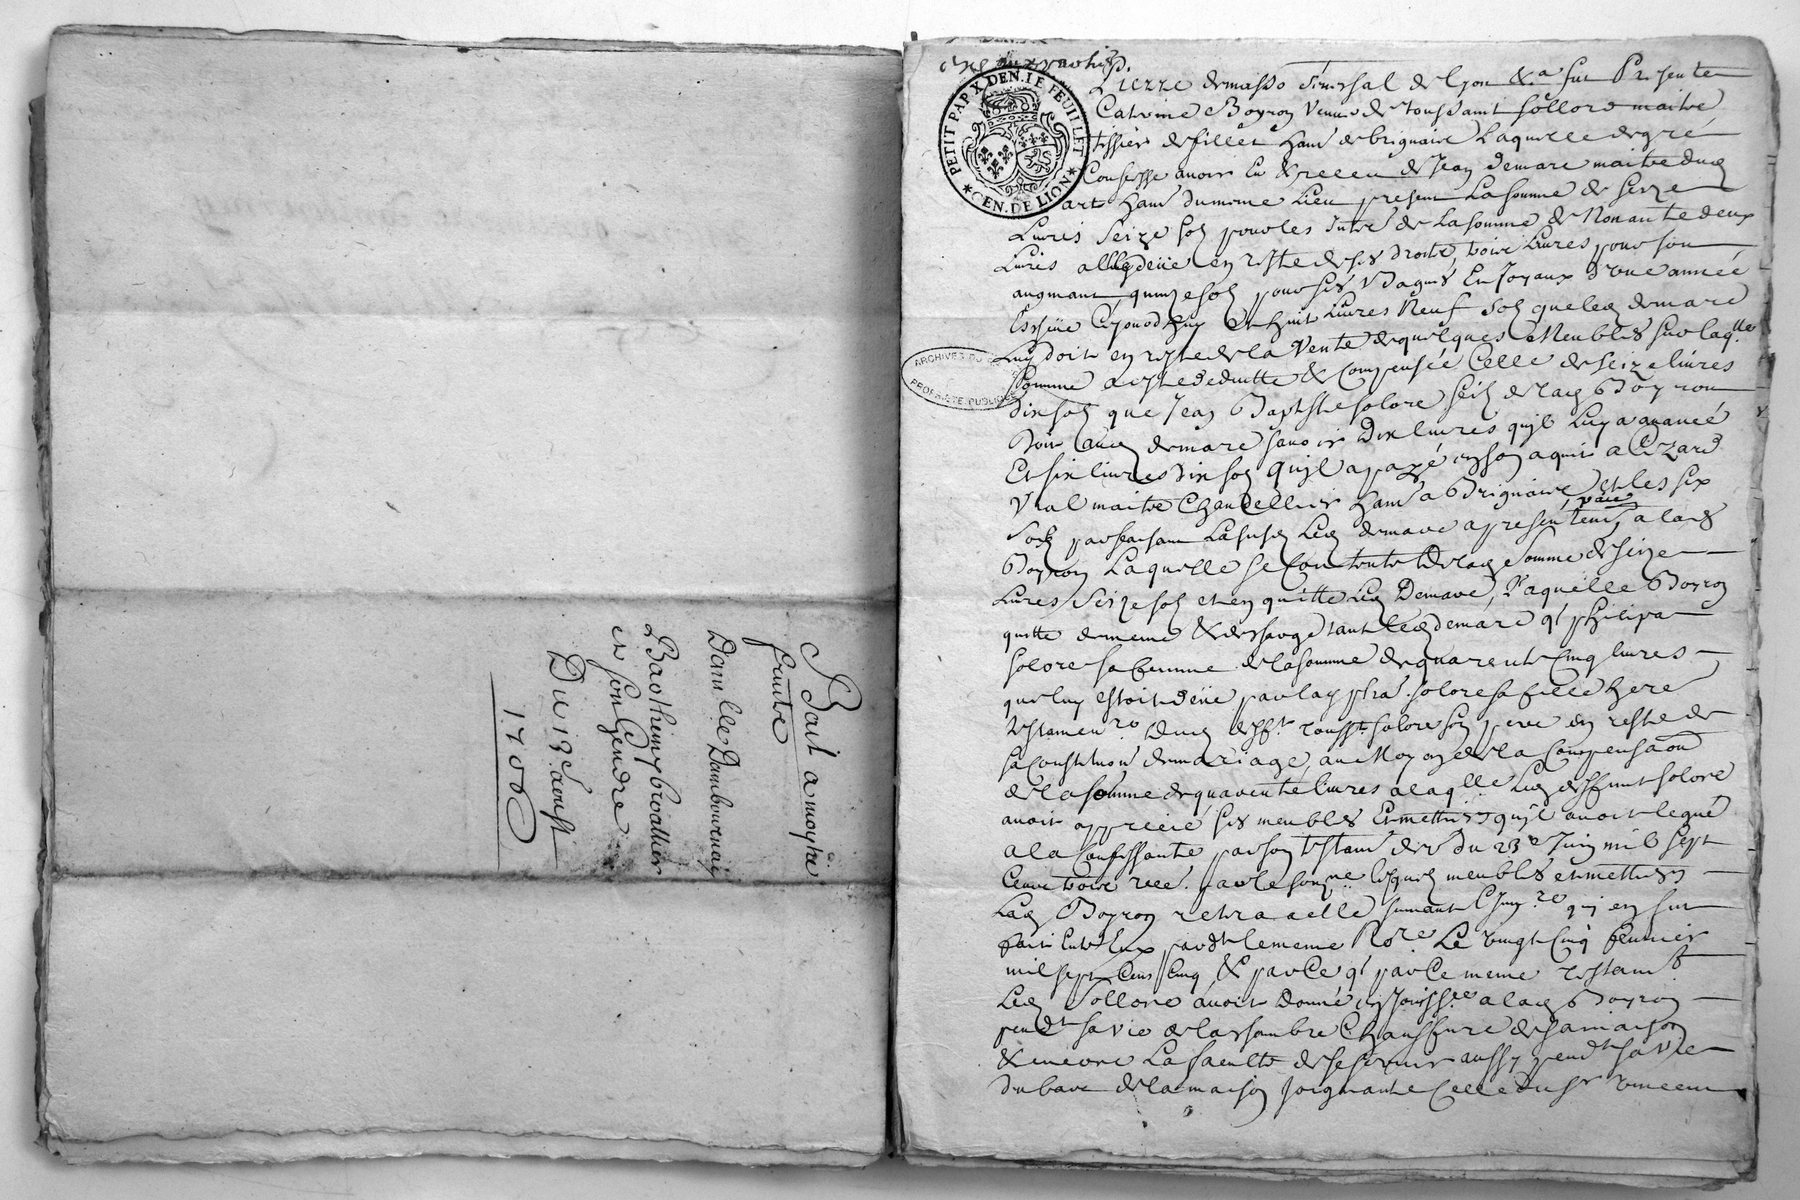 Bail a moytié
fruits
Dans le Dambournay
Barthelmy brallier
et son Gendre
Du 13e aoust
1706
PETIT PAP X DEN. LE FEUILLET
GEN. DE LION
ARCHIVES DU
PROPRIETE PUBLIQUE
Pierre demasso seneschal de lyon &a fut Presente
Catrine Boyron veuve de toussaint sollore maitre
tissier de fillet hant de brignaire Laquelle de gré
Confesse avoir Eu & receu de Jean demare maitre dud
art hant du meme Lieu present La somme de seize
Livres seize sol pour les de La somme de Nonante deux
Livres en reste de ses droits, trois Livres pour son
augmant, quinze sol pour ses Bagues En Joyaux d'une année
Escheüe Ce jourdhuy & huit Livres Neuf sol que led demare
Luy doit en reste de la Vente de quelques Meubles sur laqlle
somme a esté deduitte & Compensée Celle de seize livres
dix sol que Jean Baptiste solore fils de lad Boyron
doit aud demare savoir Dix livres qu'il Luy a avancé
Et six livres dix sol qu'il a payé en son aquit a
Vial maitre Chandellier hant a Brignaire, et les six
sols parfaisant La susd Led demare a presentemt payé a lad
Boyron Laquelle se Contente de lad somme de seize
Livres seize sol et en quitte Led Demare, Laquelle Boyron
quitte de meme & descharge tant led demare q' philipa
solore sa femme de la somme de quarente Cinq livres
que luy estoit deüe par lad pha solore sa fille here
testamenre dud deft tousst solore son pere en reste de
sa Constitution de mariage, au Moyen de la Compensaon
de la somme de quarente livres a laqlle Led deffunt solore
avoit apprecié ses meubles Et mettiers qu'il avoit legué
a la Confessante par son testamt du 23e Juin mil sept
Cent trois receu par le soubne lesquels meubles et mettiers
Lad Boyron retira a elle suivant l'Inre qui en fut
fait Entre Eux pardt le meme Nore Le vingt Cinq fevrier
mil sept Cens Cinq & par Ce q' par Ce meme testamt
Led sollore avoit donné en Jouissce a lad Boyron
pendt sa vie de la chambre Chauffure de sa maison
& encore La faculté de se servir aussy pendt sa vie
du bare de la maison Joignante Celle du sr vincent